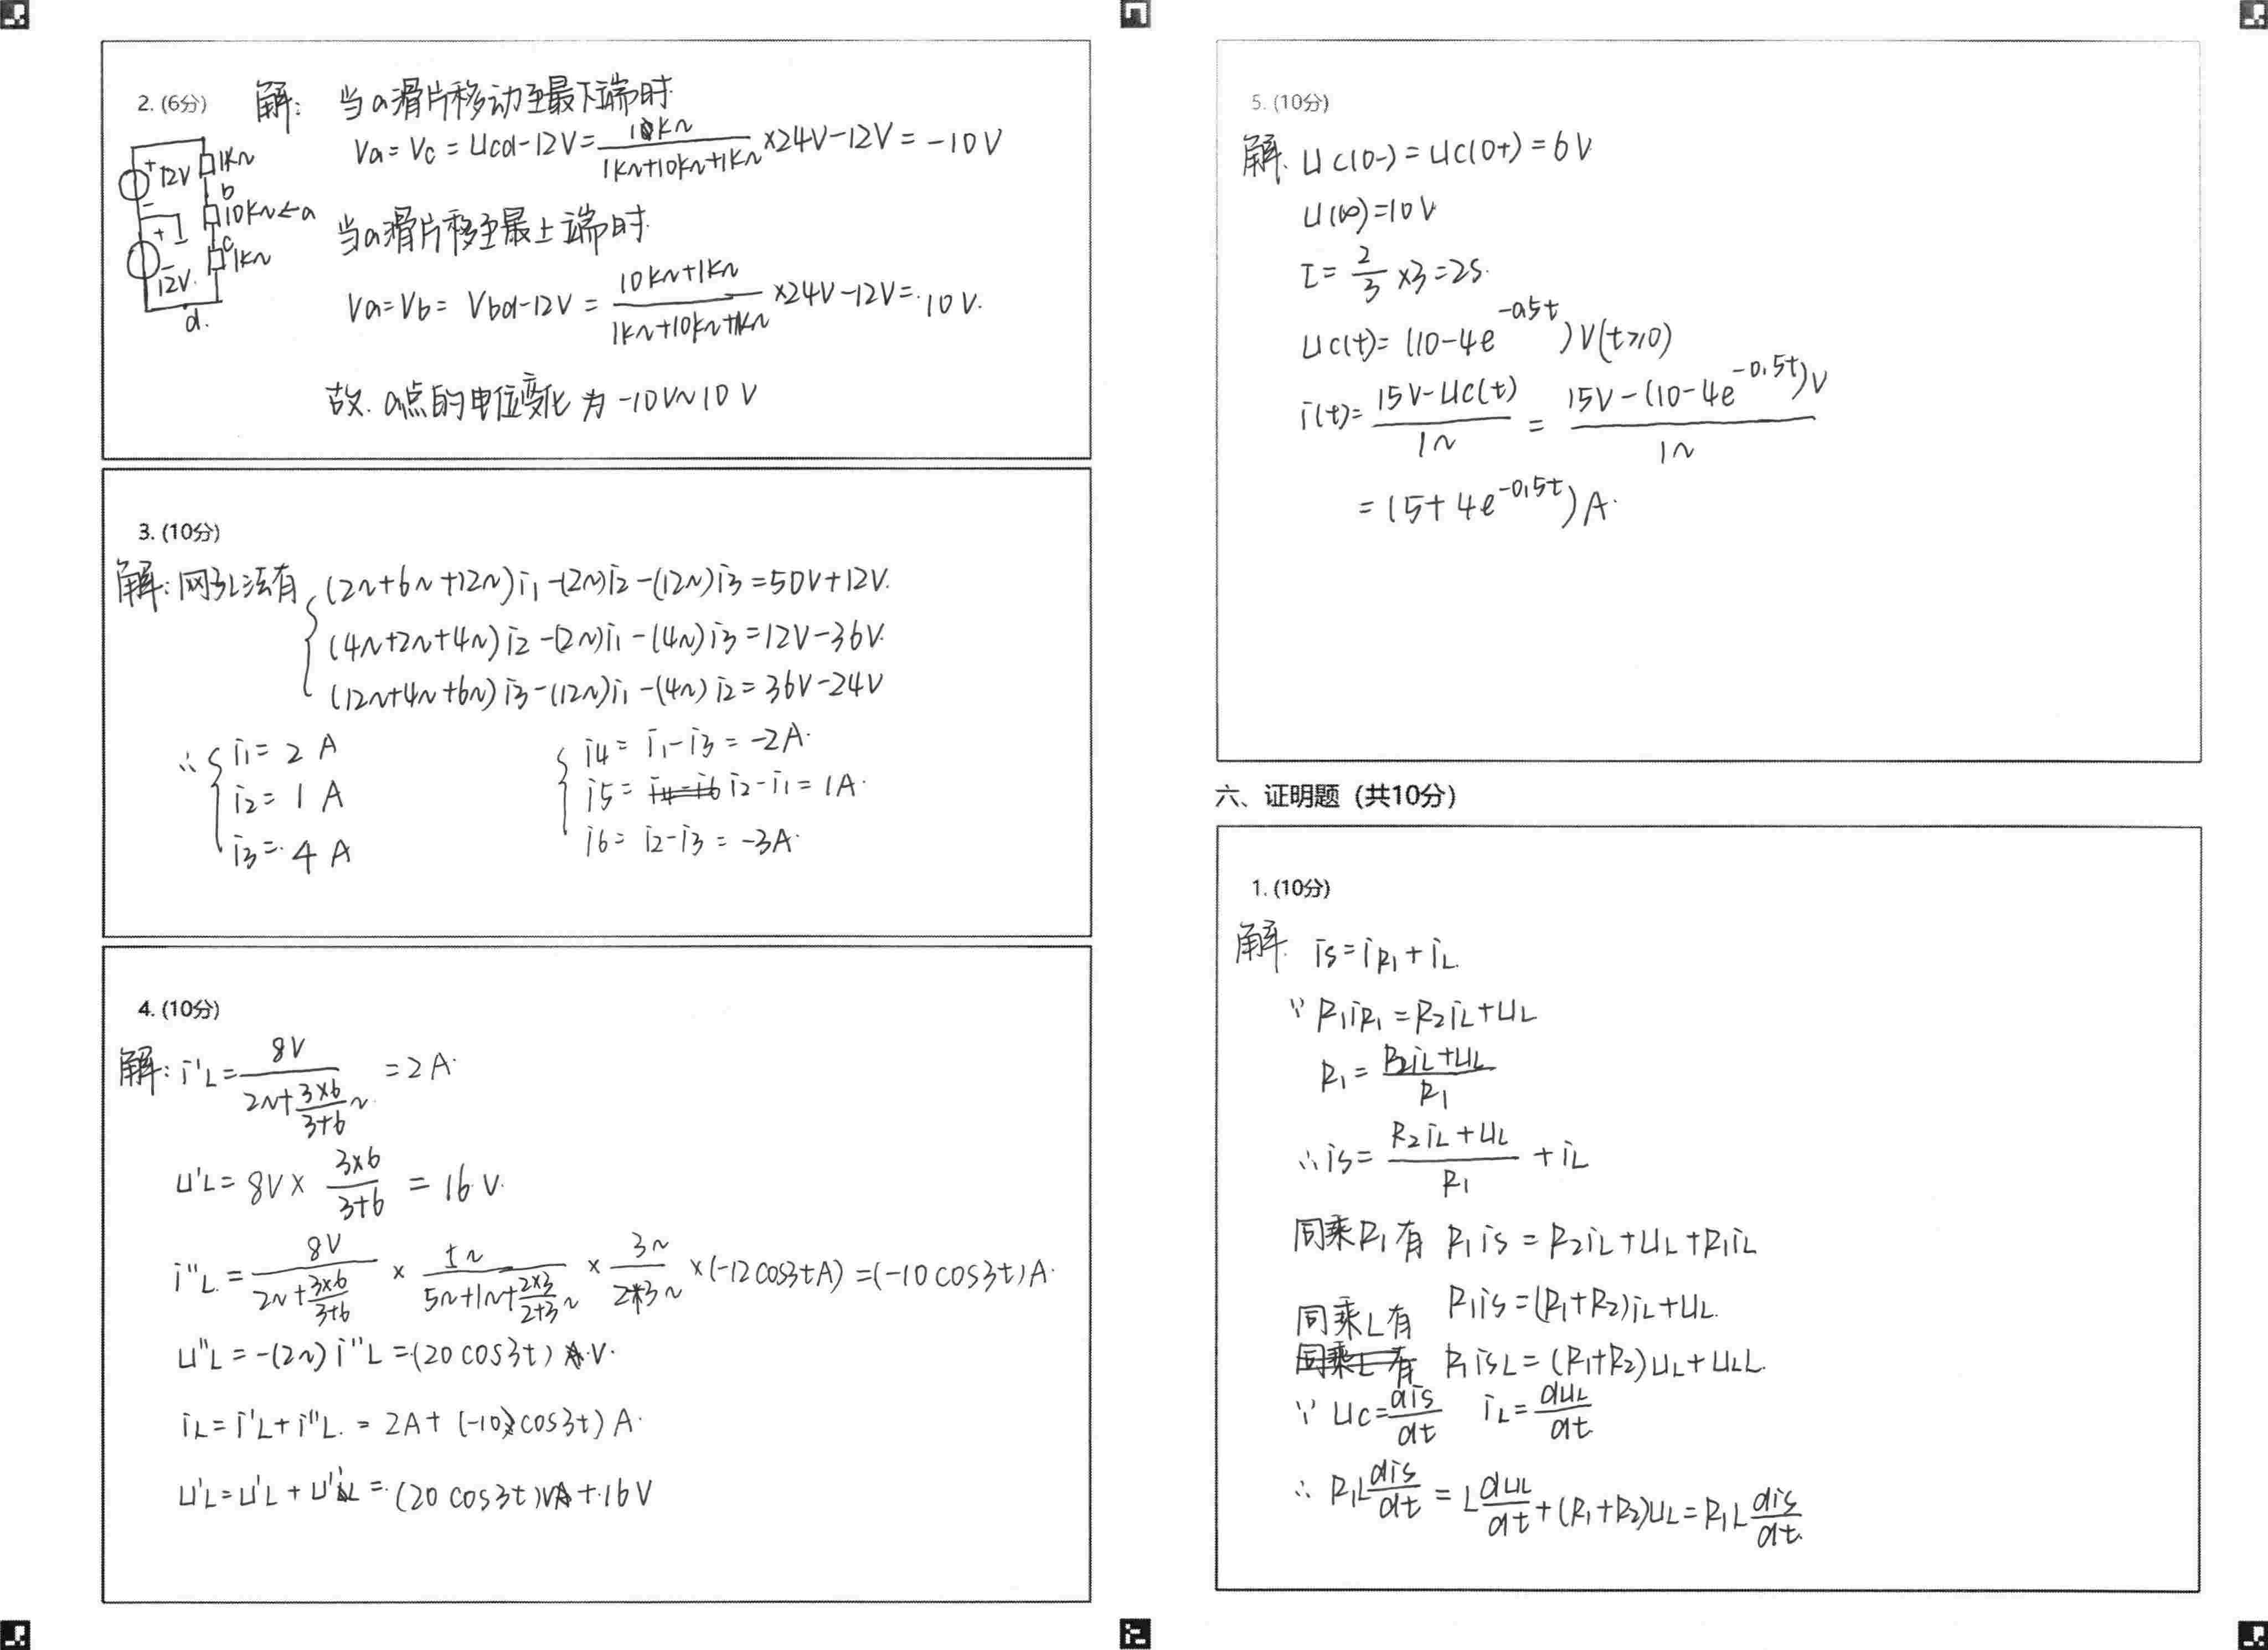 2. (6分)
解: 当a滑片移动至最下端时
Va = Vc = Ucd-12V = 1kΩ/(1kΩ+10kΩ+1kΩ) ×24V-12V = -10V
+ 12V 1kΩ
b
- 10kΩ←a
+ c
- 1kΩ
12V.
d.
当a滑片移至最上端时.
Va=Vb= Vbd-12V = (10kΩ+1kΩ)/(1kΩ+10kΩ+1kΩ) ×24V-12V=.10V.
故. a点的电位变化为 -10V~10V
3. (10分)
解: 网孔法有 { (2Ω+6Ω+12Ω)i1-(2Ω)i2-(12Ω)i3=50V+12V.
(4Ω+2Ω+4Ω)i2-(2Ω)i1-(4Ω)i3=12V-36V.
(12Ω+4Ω+6Ω)i3-(12Ω)i1-(4Ω)i2=36V-24V
∴ { i1= 2 A { i4= i1-i3 = -2A.
i2= 1 A i5= i2-i1= 1A.
i3=. 4 A i6= i2-i3 = -3A.
4. (10分)
解: i'L= 8V/(2Ω+(3×6)/(3+6)Ω) = 2A.
u'L= 8V× (3×6)/(3+6) = 16V.
i''L = 8V/(2Ω+(3×6)/(3+6)) × 5Ω/(5Ω+1Ω+(2×3)/(2+3)Ω) × 3Ω/(2+3Ω) ×(-12cos3tA) =(-10cos3t)A.
u''L = -(2Ω) i''L =(20cos3t) V.
iL= i'L+ i''L. = 2A+ (-10cos3t) A.
u'L=u'L + u''L =.(20 cos3t)V +.16V
5. (10分)
解. uc(0-) = uc(0+) = 6V
u(∞)=10V
τ= 2/3 ×3=2S.
uc(t)= (10-4e^-0.5t)V(t≥0)
i(t)= (15V-uc(t))/1Ω = (15V-(10-4e^-0.5t)V)/1Ω
= (5+ 4e^-0.5t)A.
六、证明题（共10分）
1. (10分)
解. is=iR1+iL.
∵ R1iR1=R2iL+uL
R1= (R2iL+uL)/R1
∴is= (R2iL+uL)/R1 + iL
同乘R1有 R1is = R2iL+uL+R1iL
R1is=(R1+R2)iL+uL.
同乘L有
R1isL= (R1+R2)uL+uLL.
∵ uc=dis/dt iL=duL/dt
∴ R1Ldis/dt = LduL/dt+(R1+R2)uL=R1Ldis/dt.